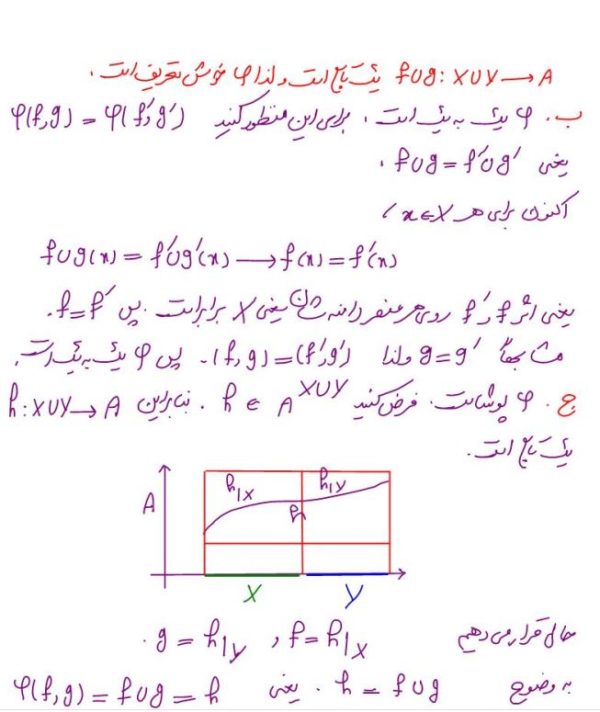 f∪g: X∪Y ⟶ A یک تابع است و لذا φ خوش تعریف است.
ب. φ یک به یک است. برای این منظور کنید φ(f,g) = φ(f′,g′)
یعنی f∪g = f′∪g′.
اکنون برای هر x∈X،
f∪g(x) = f′∪g′(x) ⟶ f(x) = f′(x)
یعنی اثر f و f′ روی هر عنصر دامنه شان یعنی X برابر است. پس f = f′.
مشابهاً g = g′ ولذا (f,g) = (f′,g′). پس φ یک به یک است.
ج. φ پوشاست. فرض کنید h ∈ A^{X∪Y}. بنابراین h: X∪Y ⟶ A
یک تابع است.
h|X h|Y
A h
X Y
حال قرار می دهیم f = h|X , g = h|Y.
به وضوح h = f∪g. یعنی φ(f,g) = f∪g = h